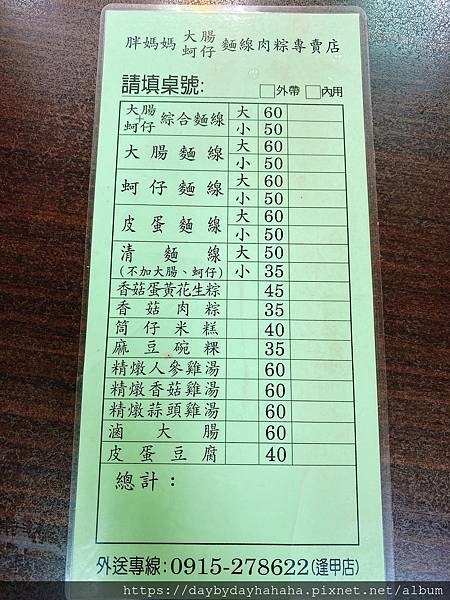 胖媽媽 大腸 蚵仔 麵線肉粽專賣店
請填桌號: □外帶 □內用
大腸+蚵仔 綜合麵線 大 60
小 50
大腸麵線 大 60
小 50
蚵仔麵線 大 60
小 50
皮蛋麵線 大 60
小 50
清麵線 大 50
(不加大腸、蚵仔) 小 35
香菇蛋黃花生粽 45
香菇肉粽 35
筒仔米糕 40
麻豆碗粿 35
精燉人參雞湯 60
精燉香菇雞湯 60
精燉蒜頭雞湯 60
滷大腸 60
皮蛋豆腐 40
總計：
外送專線:0915-278622(逢甲店)
https://daybydayhahaha.pixnet.net/album